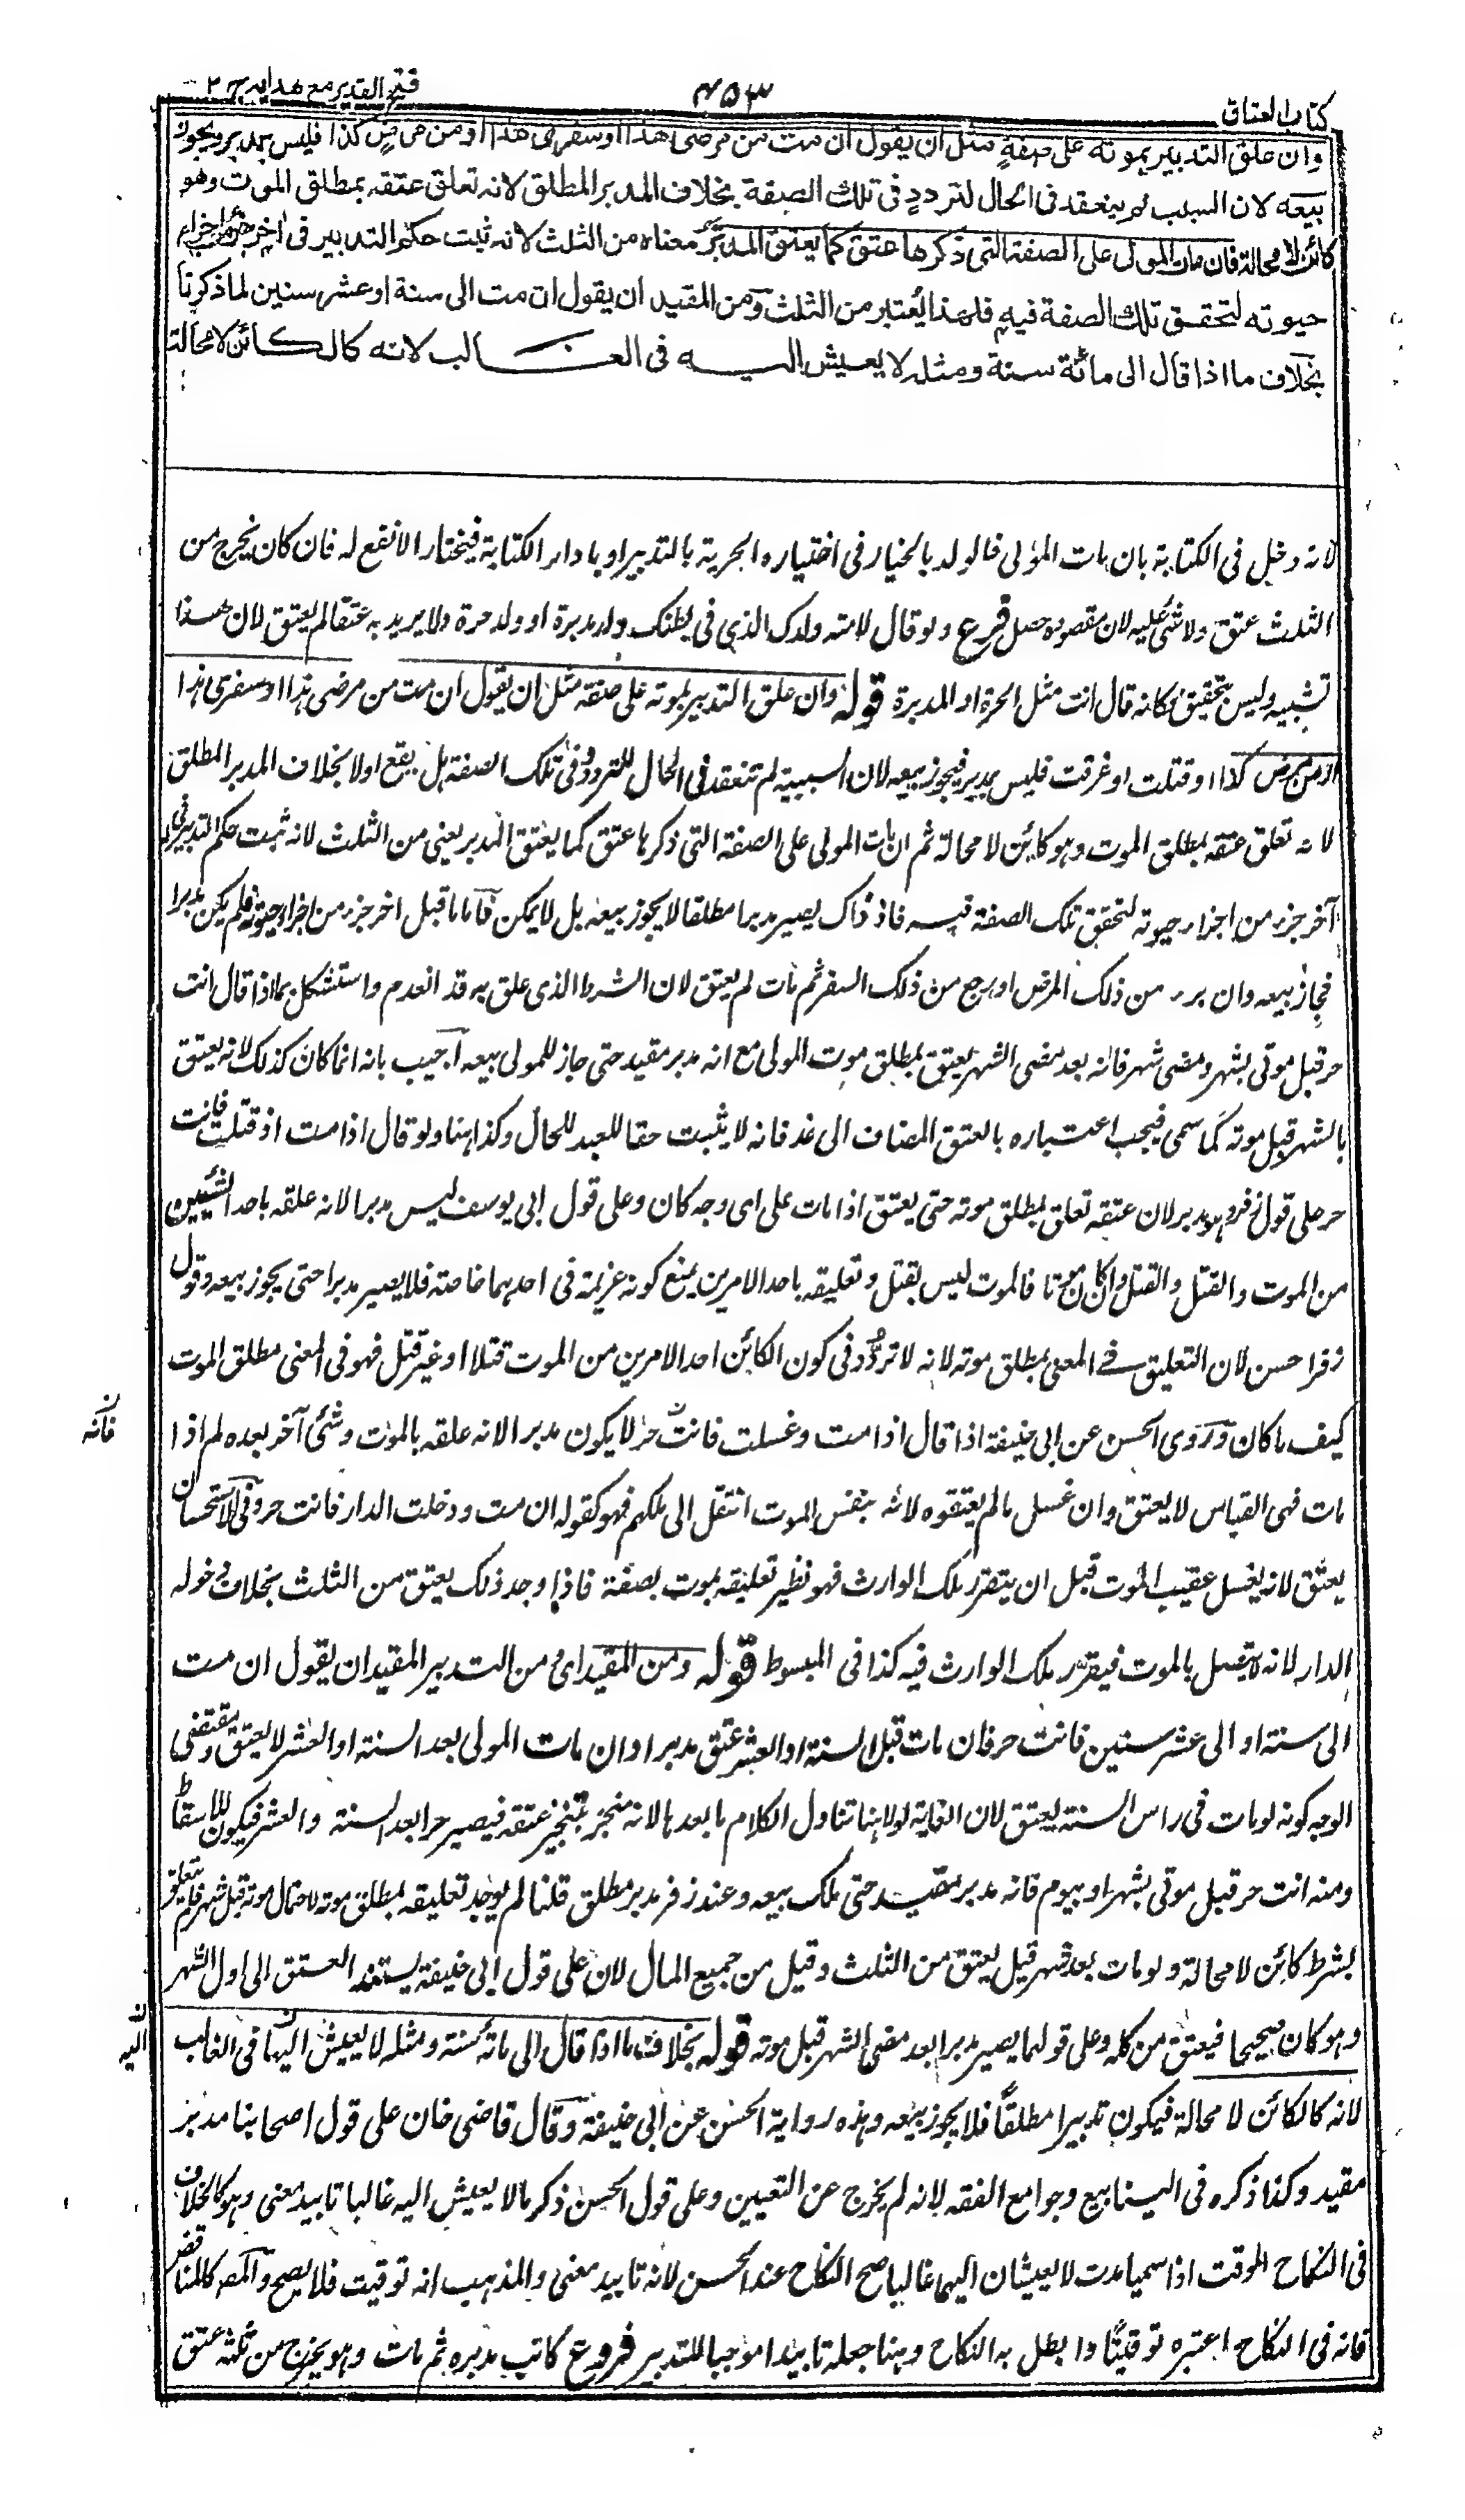 كتاب العتاق
٤٥٣
فتح القدير مع هدايه ج ٢
وان علق التدبير بموته على صفةٍ مثل ان يقول ان مت من مرضى هذا او سفرى هذا او من مرضٍ كذا فليس بمدبر ويجوز
بيعه لان السبب لم ينعقد فى الحال لترددٍ فى تلك الصفة بخلاف المدبر المطلق لانه تعلق عتقه بمطلق الموت وهو
كائن لا محالة فان مات المولى على الصفة التى ذكرها عتق كما يعتق المدبَّر معناه من الثلث لانه ثبت حكم التدبير فى اٰخر جزء من اجزاء
حيوته لتحقق تلك الصفة فيه فلهذا يُعتبر من الثلث ومن المقيد ان يقول ان مت الى سنة او عشر سنين لما ذكرنا
بخلاف ما اذا قال الى مائة سنة ومثله لا يعيش اليه فى الغالب لانه كالكائن لا محالة
لانه دخل فى الكتابة بان مات المولى فالولد بالخيار فى اختياره الحرية بالتدبير او باداء الكتابة فيختار الانفع له فان كان يخرج من
الثلث عتق ولا شئ عليه لان مقصوده حصل فرع ولو قال لامته ولدك الذى فى بطنك ولد مدبرة او ولد حرة ولا يريد به عتقا لم يعتق لان هذا
تشبيه وليس بتحقيق فكانه قال انت مثل الحرة او المدبرة قوله وان علق التدبير بموته على صفة مثل ان يقول ان مت من مرضى هذا او سفرى هذا
او من مرض كذا او قتلت او غرقت فليس بمدبر فيجوز بيعه لان السببية لم تنعقد فى الحال للتردد فى تلك الصفة هل يقع اولا بخلاف المدبر المطلق
لانه تعلق عتقه بمطلق الموت وهو كائن لا محالة ثم ان مات المولى على الصفة التى ذكرها عتق كما يعتق المدبر يعنى من الثلث لانه ثبت حكم التدبير فى
آخر جزء من اجزاء حيوته لتحقق تلك الصفة فيه فاذ ذاك يصير مدبرا مطلقا لا يجوز بيعه بل لا يمكن فاما ما قبل اخر جزء من اجزاء حيوته فلم يكن مدبرا
فجاز بيعه وان برء من ذلك المرض او رجع من ذلك السفر ثم مات لم يعتق لان الشرط الذى علق به قد انعدم واستشكل بما اذا قال انت
حر قبل موتى بشهر ومضى شهر فانه بعد مضى الشهر يعتق بمطلق موت المولى مع انه مدبر مقيد حتى جاز للمولى بيعه اجيب بانه انما كان كذلك لانه يعتق
بالشهر قبل موته كما سمى فيجب اعتباره بالعتق المضاف الى غد فانه لا يثبت حقا للعبد للحال وكذا هنا ولو قال اذا مت او قتلت فانت
حر على قول زفر هو مدبر لان عتقه تعلق بمطلق موته حتى يعتق اذا مات على اى وجه كان وعلى قول ابى يوسف ليس مدبرا لانه علقه باحد الشيئين
من الموت والقتل والقتل وان كان موتا فالموت ليس بقتل وتعليقه باحد الامرين يمنع كونه عزيمة فى احدهما خاصة فلا يصير مدبرا حتى يجوز بيعه وقول
زفر احسن لان التعليق فى المعنى بمطلق موته لانه لا تردد فى كون الكائن احد الامرين من الموت قتلا او غير قتل فهو فى المعنى مطلق الموت
كيف ما كان وروى الحسن عن ابى حنيفة اذا قال اذا مت وغسلت فانت حر لا يكون مدبرا لانه علقه بالموت وشئ آخر بعده ثم اذا
فانه ن
مات ففى القياس لا يعتق وان غسل ما لم يعتقوه لانه بنفس الموت انتقل الى ملكهم فهو كقوله ان مت ودخلت الدار فانت حر وفى الاستحسان
يعتق لانه يغسل عقيب الموت قبل ان يتقرر ملك الوارث فهو نظير تعليقه بموت بصفة فاذا وجد ذلك يعتق من الثلث بخلاف دخوله
الدار لانه لا يتصل بالموت فيتقرر ملك الوارث فيه كذا فى المبسوط قوله ومن المقيد اى من التدبير المقيد ان يقول ان مت
الى سنة او الى عشر سنين فانت حر فان مات قبل السنة او العشر عتق مدبرا وان مات المولى بعد السنة او العشر لا يعتق ومقتضى
الوجه كونه لو مات فى راس السنة يعتق لان الغاية لولاها تناول الكلام ما بعدها لانه منجز بتنجيز عتقه فيصير حرا بعد السنة والعشر فيكون للاسقاط
ومنه انت حر قبل موتى بشهر او بيوم فانه مدبر مقيد حتى ملك بيعه وعند زفر مدبر مطلق قلنا لم يوجد تعليقه بمطلق موته لاحتمال موته قبل شهر فلم يتعلق
بشرط كائن لا محالة ولو مات بعد شهر قيل يعتق من الثلث وقيل من جميع المال لان على قول ابى حنيفة يستند العتق الى اول الشهر
وهو كان صحيحا فيعتق من كله وعلى قولهما يصير مدبرا بعد مضى الشهر قبل موته قوله بخلاف ما اذا قال الى مائة سنة ومثله لا يعيش اليها فى الغالب
اليه ن
لانه كالكائن لا محالة فيكون تدبيرا مطلقاً فلا يجوز بيعه وهذه رواية الحسن عن ابى حنيفة وقال قاضى خان على قول اصحابنا مدبر
مقيد وكذا ذكره فى الينابيع وجوامع الفقه لانه لم يخرج عن التعيين وعلى قول الحسن ذكر ما لا يعيش اليه غالبا تابيد معنى وهو كالخلاف
فى النكاح الموقت اذا سميا مدت لا يعيشان اليها غالبا صح النكاح عند الحسن لانه تابيد معنى والمذهب انه توقيت فلا يصح والمصـ كالمناقض
فانه فى النكاح اعتبره توقيتًا وابطل به النكاح وهنا جعله تابيدا موجبا للتدبير فروع كاتب مدبره ثم مات وهو يخرج من ثلثه عتق